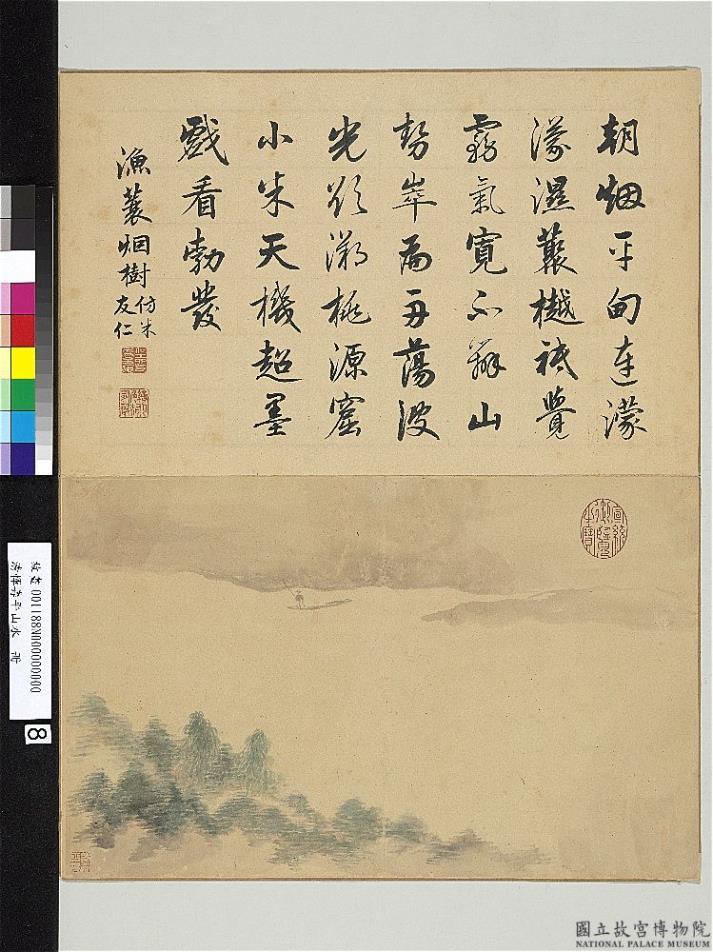 朝烟平甸連濛
濛濕蓑樾祇覺
霧氣寬不辨山
勢崒扁舟蕩波
光欲溯桃源窟
小米天機超墨
戲看勃發
漁蓑烟樹 仿米友仁
宣統御覽之寶
故畫 001188N000000000
清惲壽平山水 冊
8
國立故宮博物院
NATIONAL PALACE MUSEUM